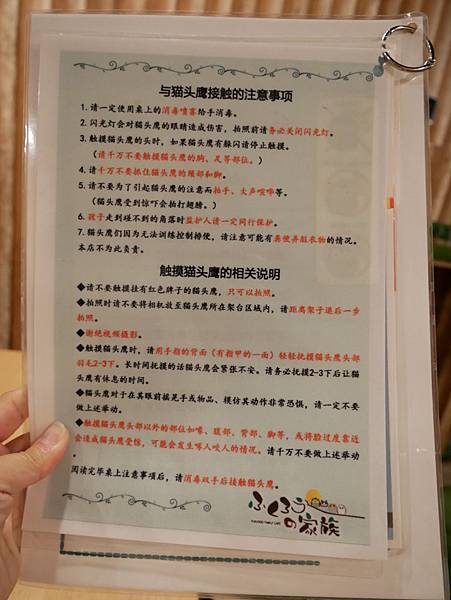 与猫头鹰接触的注意事项
1. 请一定使用桌上的消毒喷雾给手消毒。
2. 闪光灯会对猫头鹰的眼睛造成伤害，拍照前请务必关闭闪光灯。
3. 触摸猫头鹰的头时，如果猫头鹰有躲闪请停止触摸。
（请千万不要触摸猫头鹰的胸、足等部位。）
4. 请千万不要抓住猫头鹰的颈部和脚。
5. 请不要为了引起猫头鹰的注意而拍手、大声喧哗等。
（猫头鹰受到惊吓会拍打翅膀。）
6. 孩子走到碰不到的角落时监护人请一定同行保护。
7. 猫头鹰们因为无法训练控制排便，请注意可能有粪便弄脏衣物的情况。
本店不为此负责。
触摸猫头鹰的相关说明
◆请不要触摸挂有红色牌子的猫头鹰，只可以拍照。
◆拍照时请不要将相机放至猫头鹰所在架台区域内，请距离架子退后一步
拍照。
◆谢绝视频摄影。
◆触摸猫头鹰时，请用手指的背面（有指甲的一面）轻轻抚摸猫头鹰头部
羽毛2-3下。长时间抚摸的话猫头鹰会紧张不安。请务必抚摸2-3下后让猫
头鹰有休息的时间。
◆猫头鹰对于在其眼前摇晃手或物品、模仿其动作非常恐惧，请一定不要
做上述举动。
◆触摸猫头鹰头部以外的部位如嘴、腹部、背部、脚等，或将脸过度靠近
会造成猫头鹰受惊，可能会发生啄人咬人的情况。请千万不要做上述举动
。
阅读完毕桌上注意事项后，请消毒双手后接触猫头鹰。
ふくろう
の家族